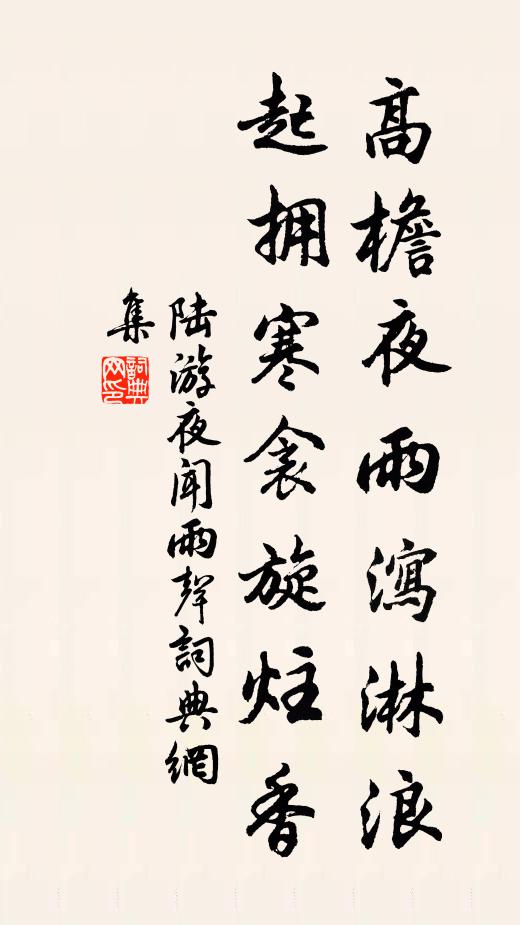 高檐夜雨瀉淋浪
起拥寒衾旋炷香
陆游夜闻雨聲詞典網
集
詞典
网印